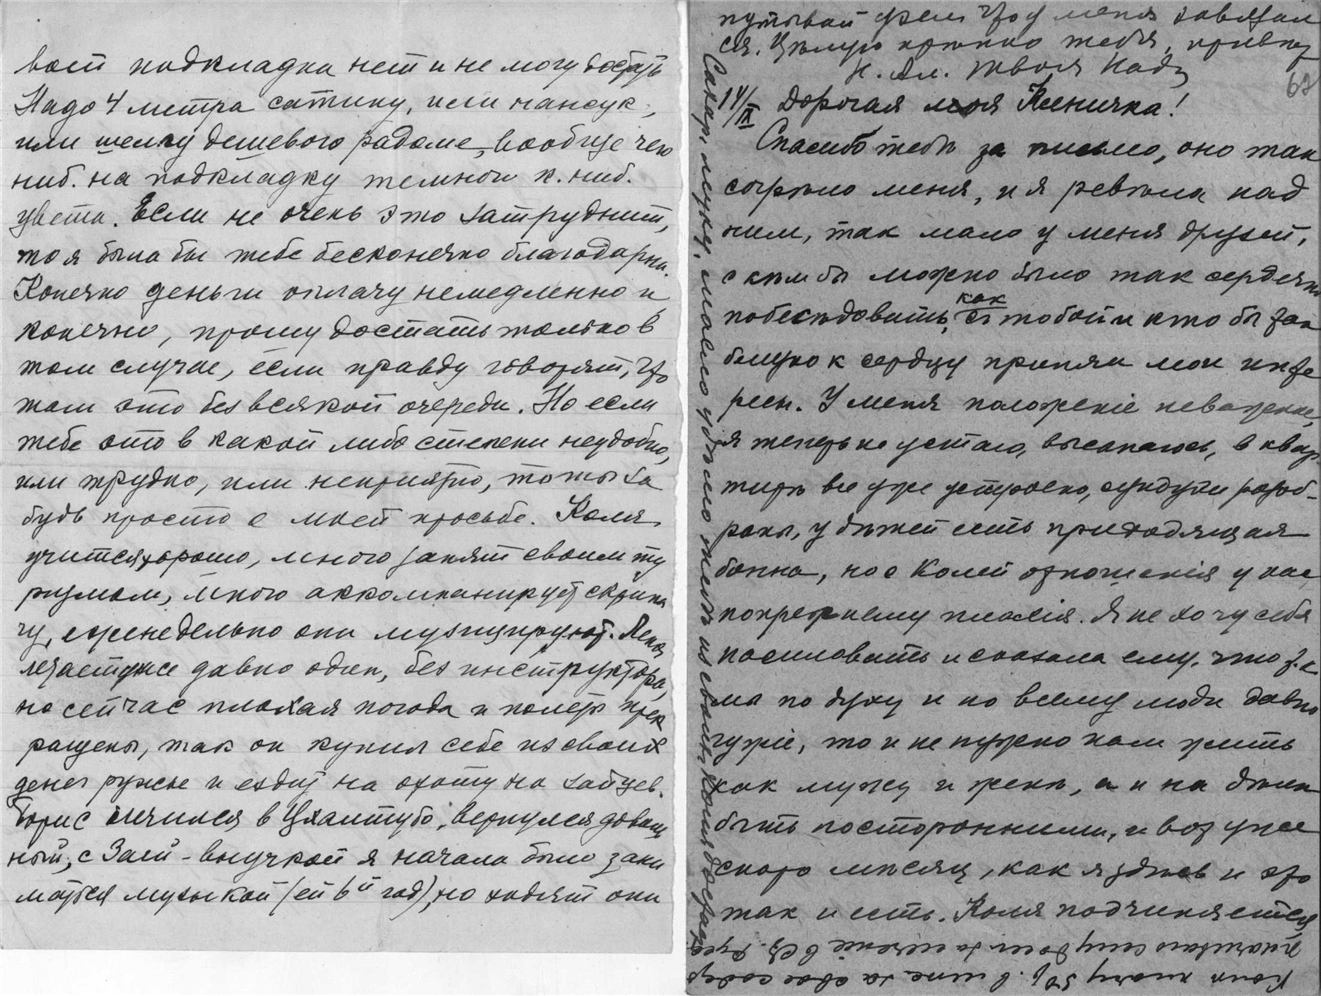 вост подкладки нет и не могу достать
Надо 4 метра сатину, или нансук,
или шелку дешевого радоме, вообще чего
ниб. на подкладку темного к. ниб.
цвета. Если не очень это затруднит,
то я была бы тебе бесконечно благодарна.
Конечно деньги оплачу немедленно и
конечно, прошу достать только в
том случае, если правду говорят, что
там это без всякой очереди. Но если
тебе это в какой либо степени неудобно,
или трудно, или неприятно, то ты за
будь просто о моей просьбе. Коля
учится хорошо, много занят своим ту
ризмом, много аккомпанирует скрипа
чу, еженедельно они музицируют.
летает уже давно один, без инструктора,
но сейчас плохая погода и полеты прек
ращены, так он купил себе из своих
денег ружье и ездит на охоту на зайцев.
Борис лечился в Цхалтубо, вернулся доволь
ный, с Заей - внучкой я начала было зани
маться музыкой (ей 6й год), но ходят они
меня
ся. Целую крепко тебя, привет
Н. Ал. твоя Надя
62
14/X Дорогая моя Ксеничка!
Спасибо тебе за письмо, оно так
согрѣло меня, и я ревѣла над
ним, так мало у меня друзей,
с кѣм бы можно было так сердечно
побесѣдовать, как с тобой и кто бы так
близко к сердцу принял мои инте
ресы. У меня положение неважное,
я теперь не устаю, высыпаюсь, в квар
тирѣ все уже устроено, сундуки разоб-
раны, у дѣтей есть приходящая
бонна, но с Колей отношенія у нас
попрежнему плохія. Я не хочу себя
насиловать и сказала ему, что т. к.
мы по духу и по всему люди давно
чужіе, то и не нужно нам жить
как мужу и женѣ, а и на дѣлѣ
быть посторонними, и вот уже
скоро мѣсяц, как я здѣсь и это
так и есть. Коля подчиняется
Сахар, муку, масло